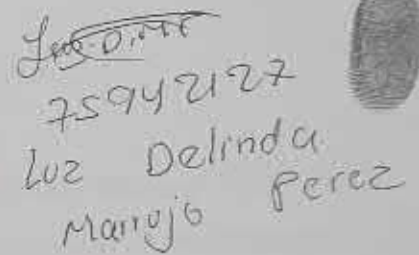 75942127
Luz Delinda
Marrujo Perez